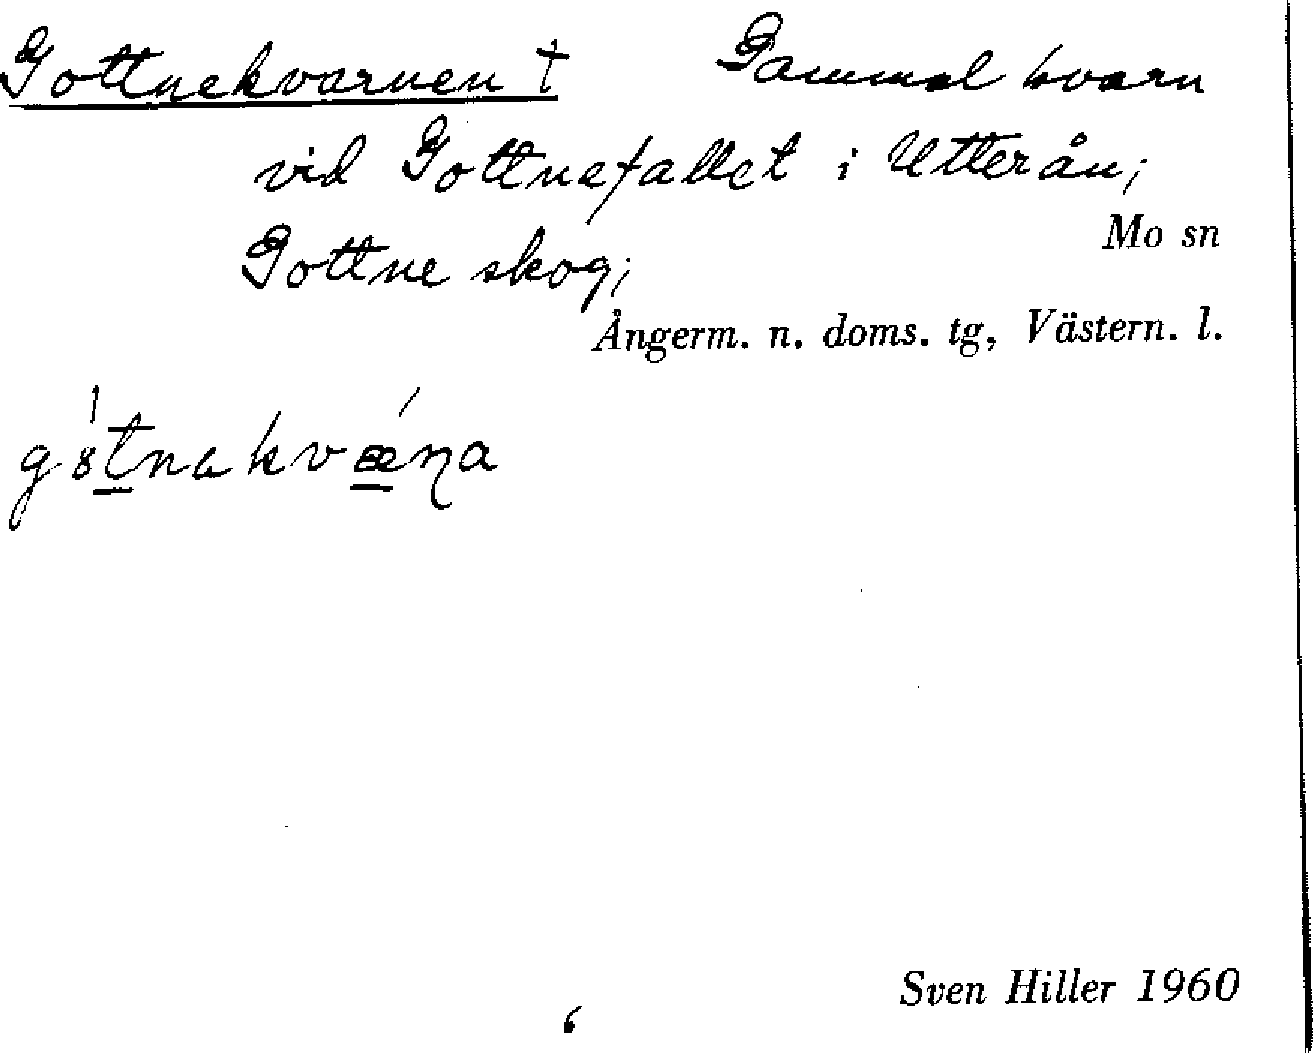 Gottnekvarnen † Gammal kvarn
vid Gottnefallet i Utterån;
Mo sn
Gottne skog;
Ångerm. n. doms. tg, Västern. l.
gȣ́t̲nakvǽ̲ɳa
Sven Hiller 1960